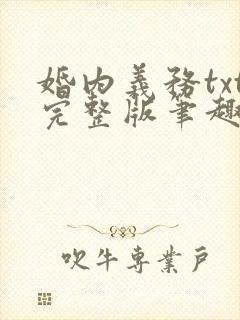 婚内義務txt
完整版筆趣
吹牛專業戶